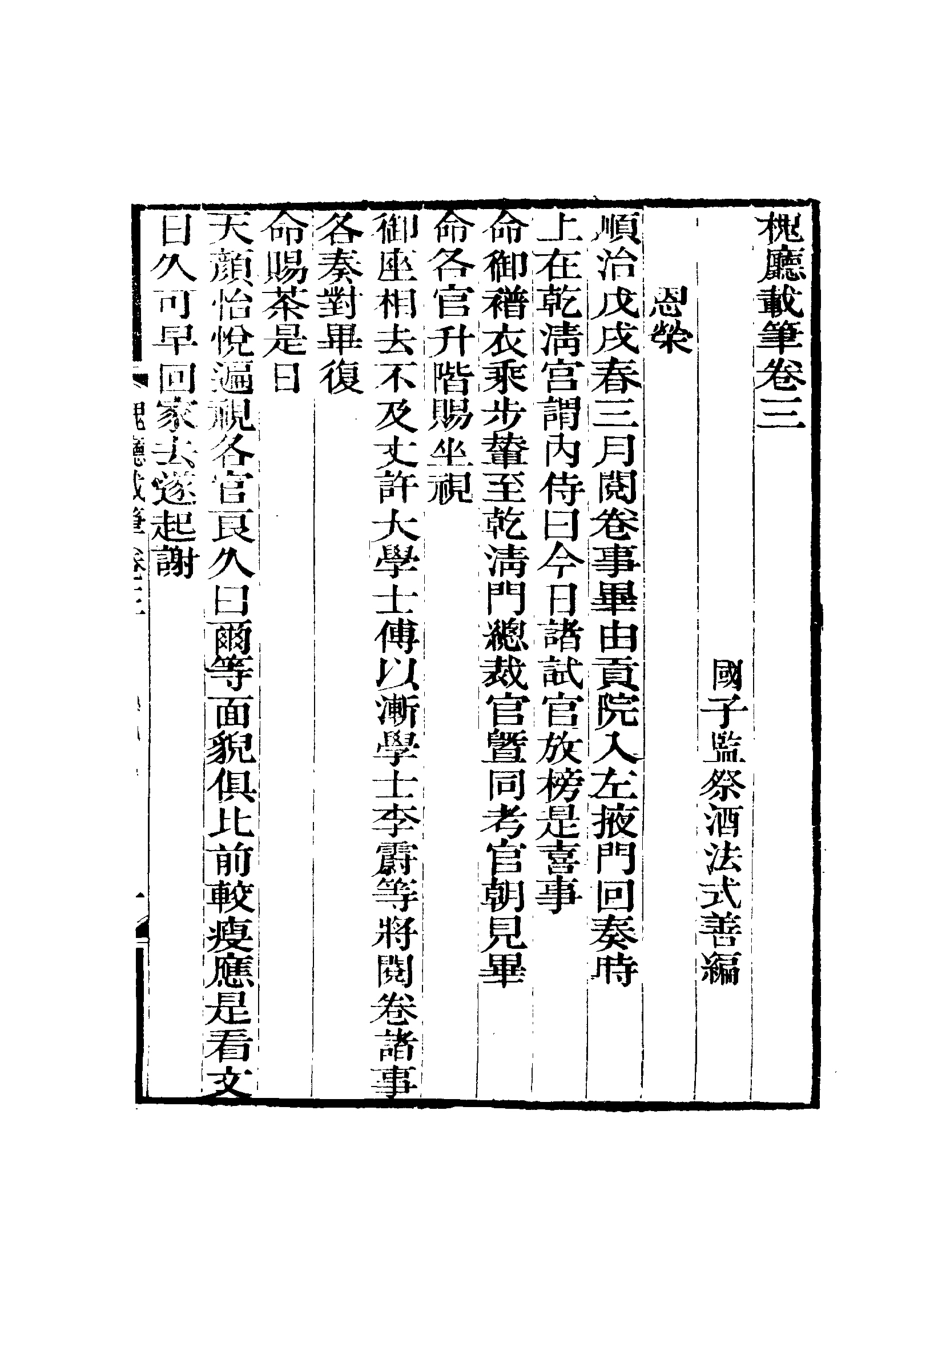 槐廳載筆卷三
國子監祭酒法式善編
恩榮
順治戊戌春三月閱卷事畢由貢院入左掖門回奏時
上在乾淸宮謂內侍曰今日諸試官放榜是喜事
命御褶衣乘步輦至乾淸門總裁官曁同考官朝見畢
命各官升階賜坐視
御座相去不及丈許大學士傅以漸學士李霨等將閱卷諸事
各奏對畢復
命賜茶是日
天顔怡悅遍視各官良久曰爾等面貌俱比前較瘦應是看文
日久可早回家去遂起謝
槐廳載筆 卷三